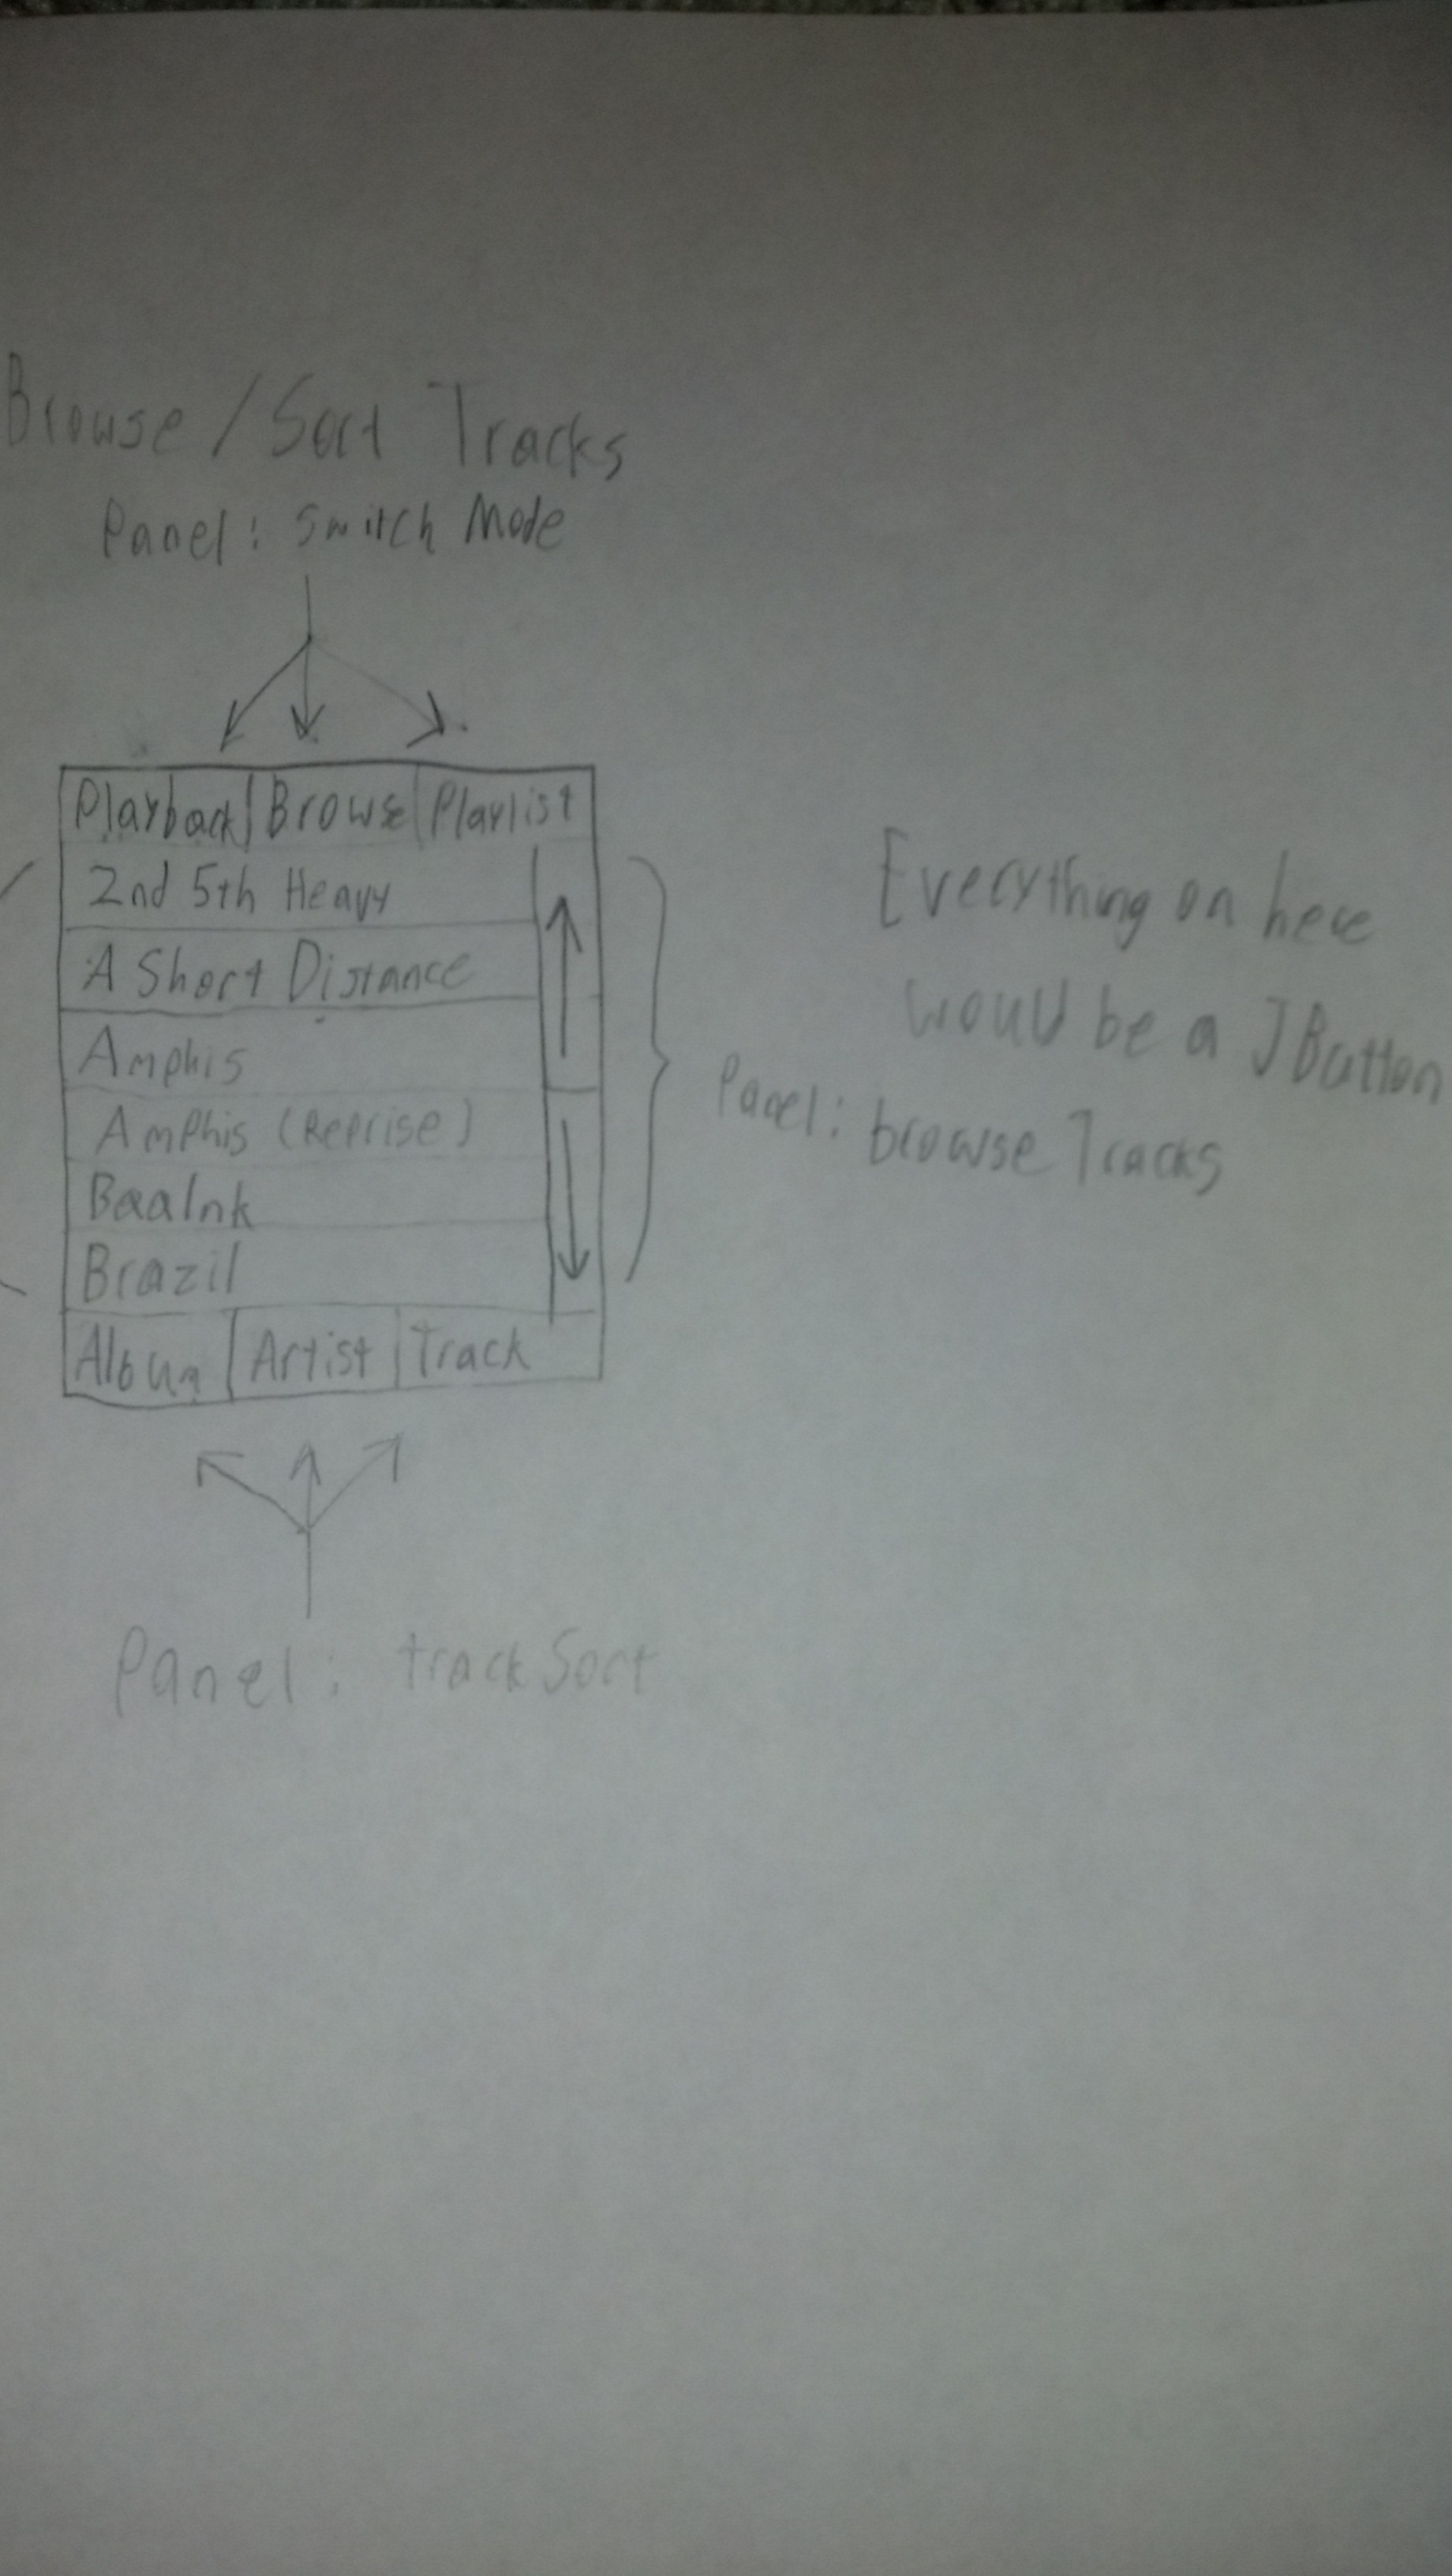 Browse / Sort Tracks
Panel: Switch Mode
Playback Browse Playlist
2nd 5th Heavy
A Short Distance
Amphis
Amphis (Reprise)
BaaInk
Brazil
Album Artist Track
Everything on here
would be a JButton
Panel: browse Tracks
Panel: track Sort